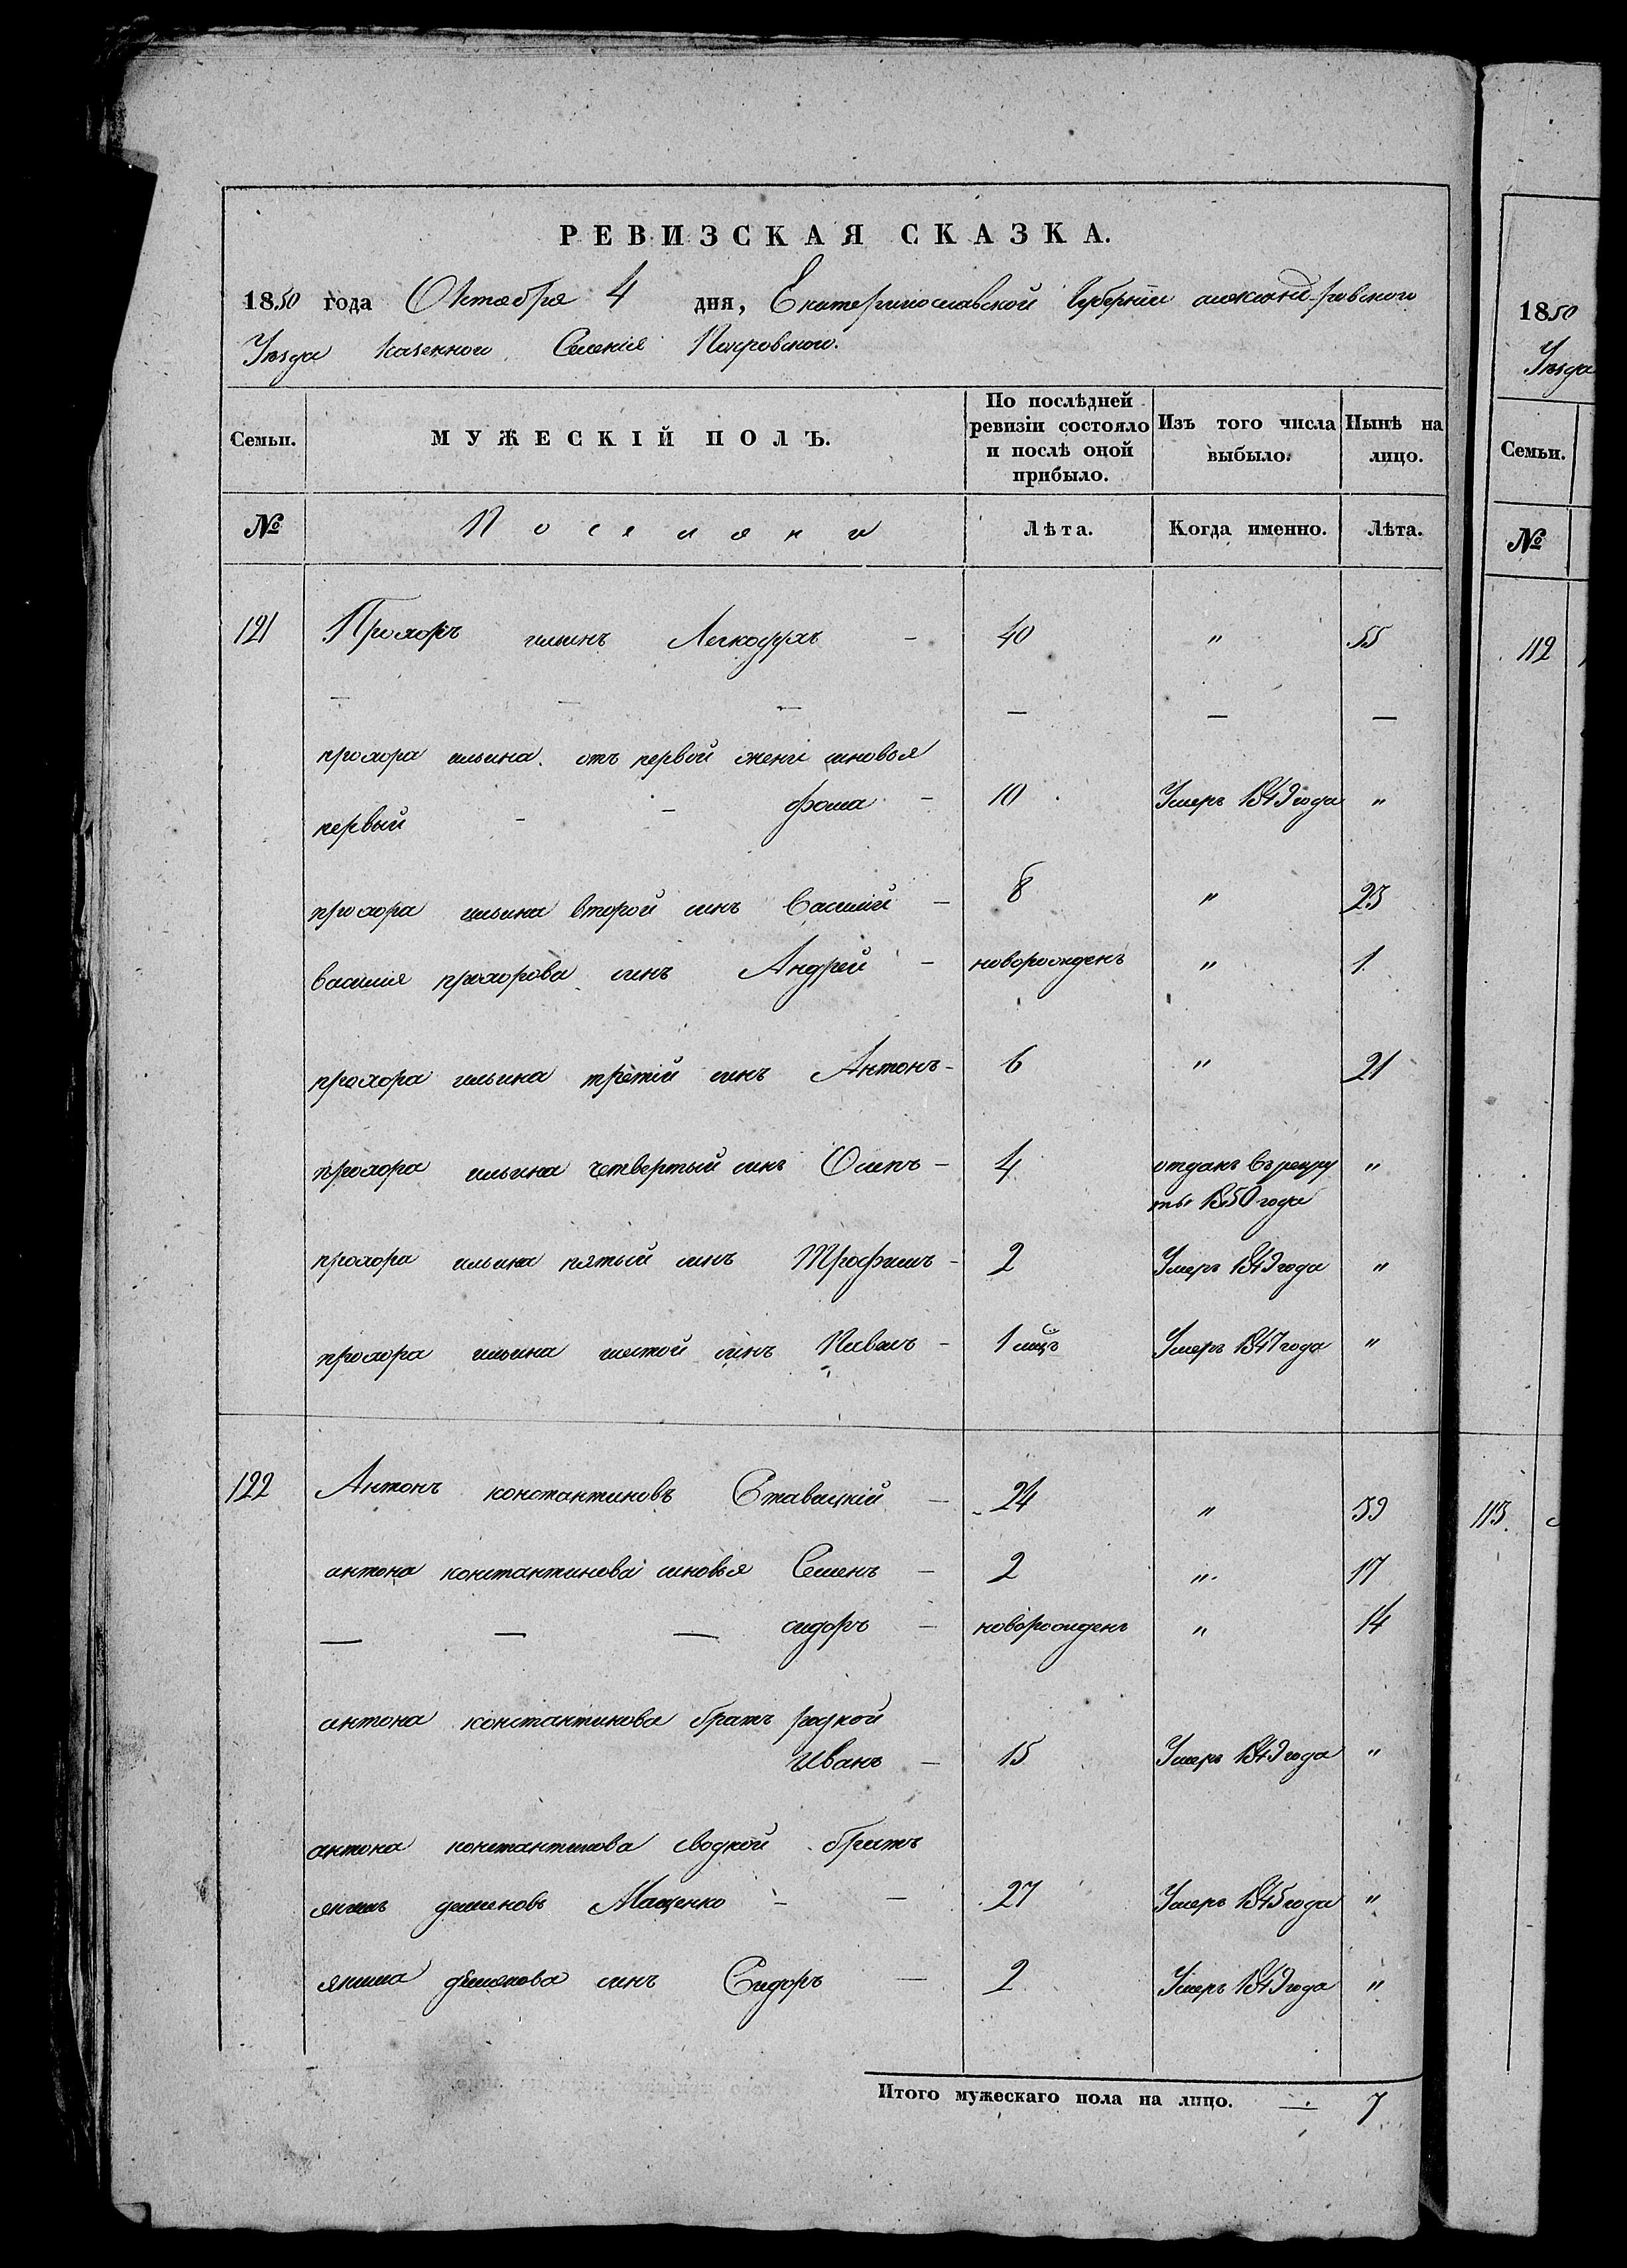 РЕВИЗСКАЯ СКАЗКА.
1850 года Октября 4 дня, Екатеринославской Губерніи александровского
Уѣзда казенного Селенія Покровского.
Семьи. МУЖЕСКІЙ ПОЛЪ. По послѣдней ревизіи состояло и послѣ оной прибыло. Изъ того числа выбыло. Нынѣ на лицо.
№ Поселяни Лѣта. Когда именно. Лѣта.
121 Прохоръ ильинъ Легкодухъ - 40 " 55
— — — — — —
прохора ильина отъ первой жени синовья
первый - - фома - 10 Умеръ 1849 года "
прохора ильина второй синъ Василій - 8 " 23
василия прохорова синъ Андрей - новорожденъ " 1
прохора ильина третій синъ Антонъ - 6 " 21
прохора ильина четвертый синъ Осипъ - 4 отданъ въ рекру
ты 1850 года "
прохора ильина пятый синъ Трофимъ - 2 Умеръ 1849 года "
прохора ильина шестой синъ Павелъ - 1 мцъ Умеръ 1847 года "
122 Антонъ константиновъ Ставицкій - 24 " 39
антона константинова синовья Семенъ - 2 " 17
— — — сидоръ - новорожденъ " 14
антона константинова братъ родной
Иванъ - 15 Умеръ 1849 года "
антона константинова сводной братъ
якимъ деменовъ Маценко - - 27 Умеръ 1845 года "
якима деменова синъ Сидоръ - 2 Умеръ 1849 года "
Итого мужескаго пола на лицо. — 7
1850
Уѣзда
Семьи.
№
112
113.